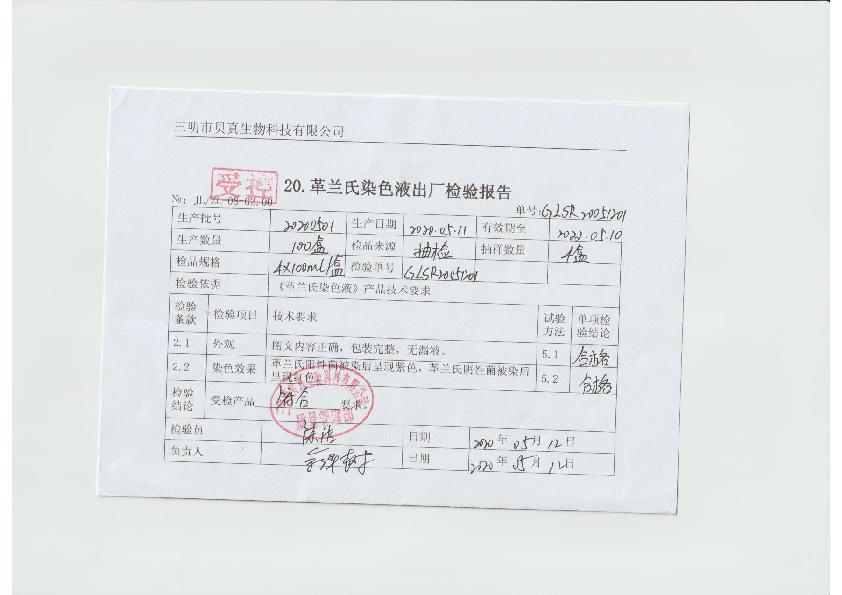 三明市贝真生物科技有限公司
受控
20.革兰氏染色液出厂检验报告
№: JL/ZL-08-02.00
单号:GLSR20051201
生产批号 20200501 生产日期 2020.05.11 有效期至 2022.05.10
生产数量 100盒 检品来源 抽检 抽样数量 4盒
检品规格 4×100ml/盒 检验单号 GLSR20051201
检验依据 《革兰氏染色液》产品技术要求
检验条款 检验项目 技术要求 试验方法 单项检验结论
2.1 外观 图文内容正确，包装完整，无漏液。 5.1 合格
2.2 染色效果 革兰氏阳性菌被染后呈现紫色，革兰氏阴性菌被染后
呈现红色 5.2 合格
检验结论 受检产品 符合 要求。
质量管理部
检验员 陈洁 日期 2020年05月12日
负责人 日期 2020年05月12日